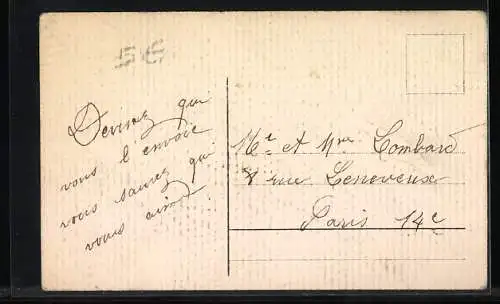 5 €
Devinez qui
vous l'envoie
vous saurez qui
vous aime
Mr et Mme Lombard
8 rue Leneveux
Paris 14e